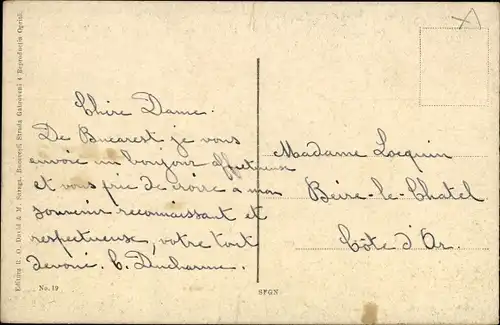 Chère Dame.
De Bucarest je vous
envoie un bonjour affectueuse
et vous prie de croire a mon
souvenir reconnaissant et
respectueuse, votre tout
dévoué. C. Ducharme.
Madame Locquin
Beire-le-Chatel
Côte d'Or.
No. 19
SFGN
Editura R. O. David & M. Saraga, Bucureşti Strada Gabroveni 4 Reproducția Oprită.